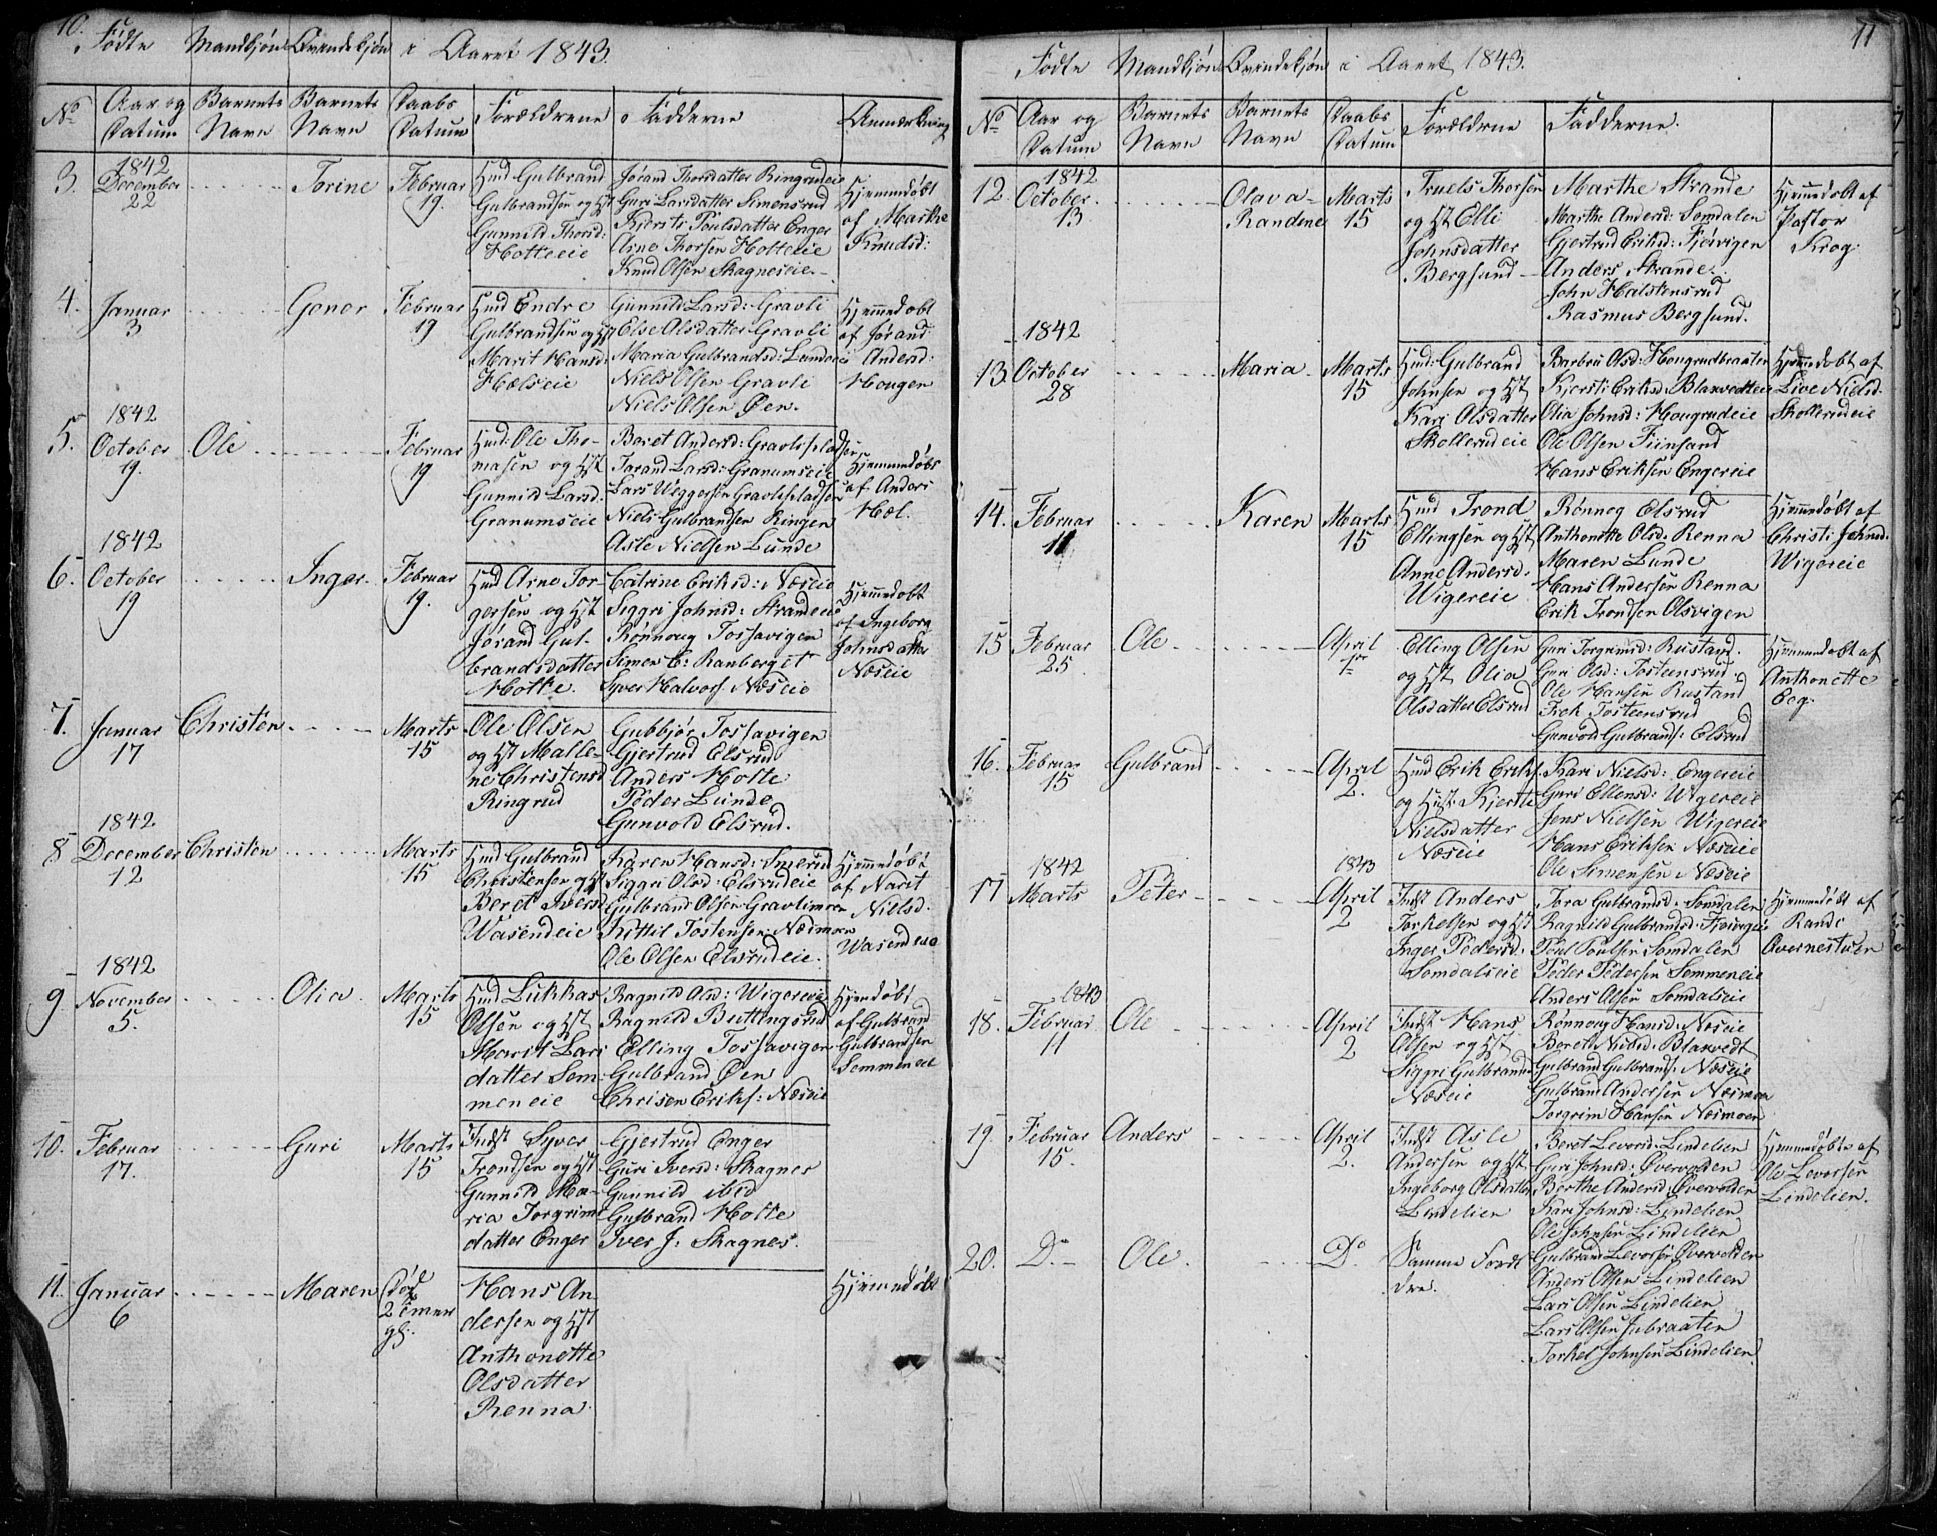 10.
Fødte Mandkjøn Qvindekjøn i Aaret 1843.
No Aar og Datum Barnets Navn Barnets Navn Daabs Datum Forældrene Fadderne Anmærkning
3. 1842 December 22 Torine Februar 19.
Huusmd Gulbrand
Gulbrandsen og Hst
Gunnild Thorsd:
Hotteeie
Jørand Thorsdatter Ringrudeie
Guri Larsdatter Simensrud
Kjersti Poulsdatter Enger
Arne Thorsen Hotteeie
Knud Olsen Skagneseie
Hjemmedøbt
af Marthe
Knudsd:
4. Januar 3 Gonor Februar 19
Endre
Gulbrandsen og Hst
Marit Hansd:
Hælseie
Gunnild Larsd: Gravli
Else Alsdatter Gravli
Maria Gulbrandsd: Lundeeie
Niels Olsen Gravli
Niels Olsen Øen.
Hjemmedøbt
af Jørand
Andersd:
Hougen
5. 1842 October 19. Ole Februar 19
Ole Tho-
masen og Hst
Gunnild Larsd.
Granumseie
Beret Andersd: Gravlipladsen
Jarand Larsd: Granumseie
Lars Weggersen Gravlipladsen
Niels Gulbrandsen Ringen
Asle Nielsen Lunde
Hjemmedøbt
af Anders
Hæl.
6. 1842 October 19 Inger Februar 19.
Arne Tor-
gersen og Hst
Jørand Gul-
brandsdatter
Hotte.
Catrine Eriksd: Næseie
Siggri Johnsd: Strandeeie
Rønnoug Tossavigen
Simen E: Ranberget
Syver Halvors: Næseie
Hjemmedøbt
af Ingeborg
Johnsdatter
Næseie
7. Januar 17 Christen Marts 15
Ole Olsen
og Hst Malle-
ne Christensd
Ringrud
Gubbjør Tossavigen
Gjertrud Elsrud
Anders Hotte
Peder Lunde
Gunvold Elsrud.
8 1842 December 12 Christen Marts 15
Gulbrand
Christensen og Hst
Beret Iversd
Wasendeie
Karen Hansd: Smerud
Siggri Olsd: Elsrudeie
Gulbrand Olsen Gravlimoen
Kittil Tostensen Nædmoen
Ole Olsen Elsrudeie.
Hjemmedøbt
af Marit
Nielsd.
Wasendeie
9 1842 November 5. Olia Marts 15
Lukkas
Olsen og Hst
Marit Lars
datter Sem-
meneie
Ragnild Olsd: Wigereie
Ragnild Buttingsrud
Elling Tossavigen
Gulbrand Øen
Chrisen Eriks: Næseie
Hjemdøbt
af Gulbrand
Gulbrandsen
Semmeneie
10. Februar 17. Guri Marts 15
Indst Syver
Trondsen og Hst
Gunnild Ma-
ria Torgrims
datter Enger
Gjertrud Enger
Guri Iversd: Skagnes
Gunnild ibid
Gulbrand Hotte
Iver J: Skagnes.
11. Januar 6 Maren Død 2 Timer gl:
Hans An
dersen og Hst
Anthonette
Olsdatter
Renna
Hjemmedøbt
11
Fødte Mandkjøn Qvindekjøn i Aaret 1843.
No Aar og Datum Barnets Navn Barnets Navn Daabs Datum Forældrne Fadderne.
12. 1842 October 13 Olava Randine Marts 15
Truels Thorsen
og Hst Elli
Johnsdatter
Bergsund
Marthe Strande
Marthe Andersd: Somdalen
Gjertrud Eriksd: Fjøivigen
Anders Strande.
John Halstensrud
Rasmus Bergsund.
Hjemmedøbt af
Pastor
Krog.
13. 1842 October 28 Maria Marts 15
Gulbrand
Johnsen og Hst
Kari Olsdatter
Skollerudeie
Barbro Olsd: Hougrudbraaten
Kjersti Eriksd: Blaxvedteie
Olia Johnsd: Hougrudeie
Ole Olsen Fiinsand
Hans Eriksen Engereie
Hjemmedøbt af
Live Nielsd.
Skollerudeie
14. Februar 11 Karen Marts 15
Trond
Ellingsen og Hst
Anne Andersd.
Wigereie
Rønnog Elsrud
Anthonette Olsd. Renna
Maren Lunde
Hans Andersen Renna
Erik Trondsen Olsvigen
Hjemmedøbt af
Christi Johnsd.
Wigereie
15 Februar 25 Ole April 1ste
Elling Olsen
og Hst Olia
Olsdatter Elsrud
Guri Torgrimsd: Rustand
Guri Olsd: Tosteensrud
Ole Hansen Rustand
Tosteensrud
Gunvold Gulbrands: Elsrud
Hjemmedøbt af
Anthonette
Eeg.
16. Februar 15 Gulbrand April 2.
Erik Eriks.
og Hust: Kjersti
Nielsdatter
Næseie
Kari Nielsd: Engereie
Guri Ellensd: Wigereie
Jens Nielsen Wigereie
Hans Eriksen Næseie
Ole Simensen Næseie
17 1842 Marts Peter 1843 April 2
Indst Anders
Torkelsen og Hst
Inger Pedersd.
Somdalseie
Tora Gulbrandsd. Somdalen
Ragnild Gulbrandsd.
Poul Poulsen Somdalen
Peder Pedersen Semmeneie
Anders Olsen Somdalseie
Hjemmedøbt af
Randi
Overnestuen
18. 1843 Februar 11 Ole April 2
Indst Hans
Olsen og Hst
Siggri Gulbrands
Næseie
Rønnoug Hansd: Næseie
Beret Nielsd. Blaxvedt
Gulbrand Gulbrands: Næseie
Gulbrand Andersen Næsmoen
Torgrim Hansen Næsmoen
19. Februar 15. Anders April 2.
Indst Asle
Andersen og Hst
Ingeborg Olsdatter
Lindelien
Beret Levorsd. Lindelien
Guri Johnsd: Øvervolden
Berthe Andersd. Øvervolden
Kari Johnsd: Lindelien
Ole Johnsen Lindelien
Hjemmedøbte af
Ole Levorsen
Lindelien.
20. Do Ole. Do
Samme Foræl
dre.
Gulbrand Levorsen Øvervolden
Anders Olsen Lindelien
Lars Olsen Lindelien
Lars Olsen Jubraaten
Torkel Johnsen Lindelien